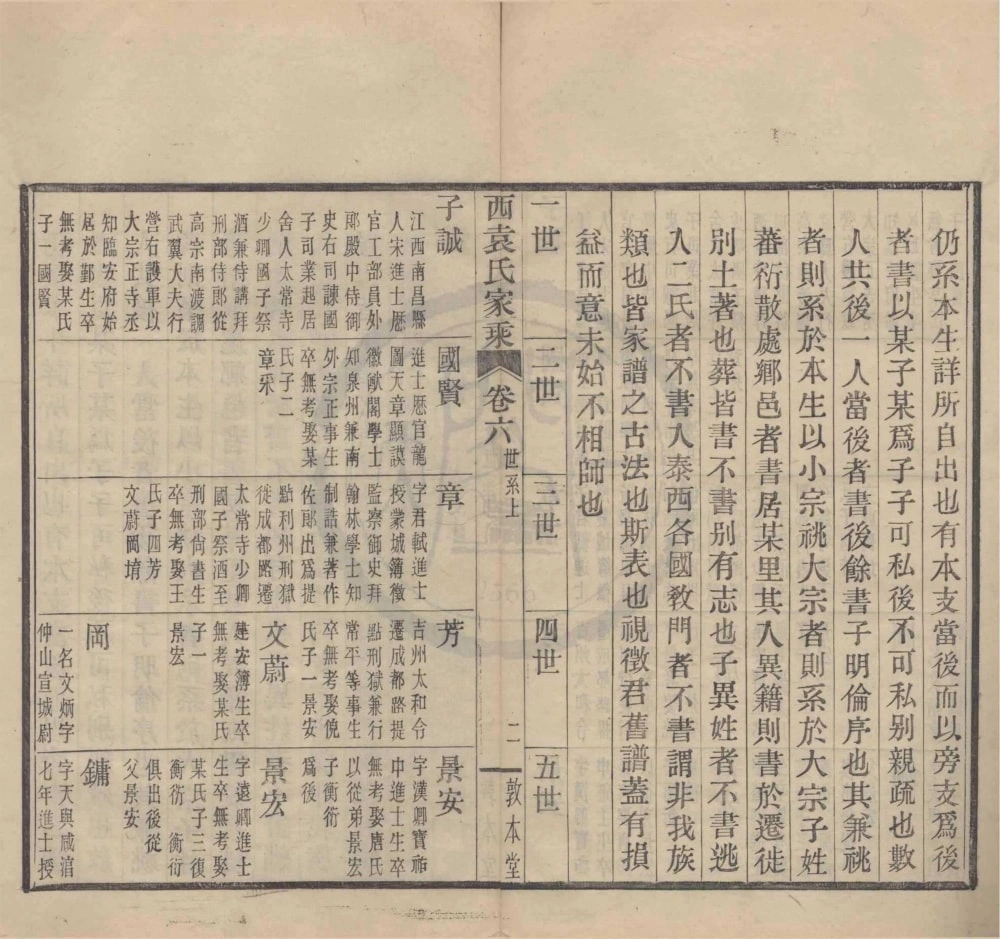 仍系本生詳所自出也有本支當後而以旁支爲後
者書以某子某爲子子可私後不可私别親疏也數
人共後一人當後者書後餘書子明倫序也其兼祧
者則系於本生以小宗祧大宗者則系於大宗子姓
蕃衍散處鄉邑者書居某里其入異籍則書於遷徙
別土著也葬皆書不書别有志也子異姓者不書逃
入二氏者不書入泰西各國敎門者不書謂非我族
類也皆家譜之古法也斯表也視徵君舊譜蓋有損
益而意未始不相師也
一世
二世
三世
四世
五世
西袁氏家乘
卷六
世系上
二
敦本堂
子誠
江西南昌縣
人宋進士歷
官工部員外
郎殿中侍御
史右司諫國
子司業起居
舍人太常寺
少卿國子祭
酒兼侍講拜
刑部侍郎從
高宗南渡調
武翼大夫行
營右護軍以
大宗正寺丞
知臨安府始
居於鄞生卒
無考娶某氏
子一國賢
國賢
進士歷官龍
圖天章顯謨
徽猷閣學士
知泉州兼南
外宗正事生
卒無考娶某
氏子二
章采
章
字君軾進士
授蒙城簿徵
監察御史拜
翰林學士知
制誥兼著作
佐郎出爲提
點利州刑獄
徙成都路遷
太常寺少卿
國子祭酒至
刑部尙書生
卒無考娶王
氏子四芳
文蔚岡堉
芳
吉州太和令
遷成都路提
點刑獄兼行
常平等事生
卒無考娶倪
氏子一景安
文蔚
建安簿生卒
無考娶某氏
子一
景宏
岡
一名文炳字
仲山宣城尉
景安
字漢卿寶祐
中進士生卒
無考娶唐氏
以從弟景宏
子衡衍
爲後
景宏
字遠卿進士
生卒無考娶
某氏子三復
衡衍 衡衍
俱出後從
父景安
鏞
字天與咸淳
七年進士授